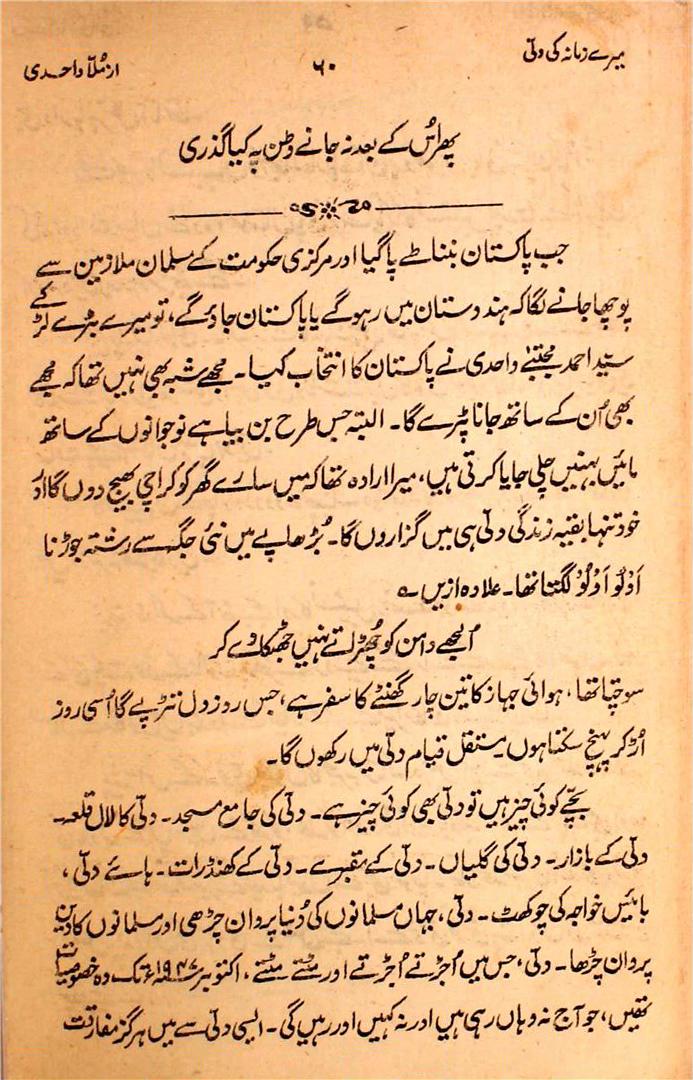 میرے زمانہ کی دلّی
۶۰
از مُلّا واحدی
پھر اُس کے بعد نہ جانے وطن پہ کیا گذری
جب پاکستان بننا طے پا گیا اور مرکزی حکومت کے مسلمان ملازمین سے
پوچھا جانے لگا کہ ہندوستان میں رہو گے یا پاکستان جاؤ گے، تو میرے بڑے لڑکے
سیّد احمد مجتبےٰ واحدی نے پاکستان کا انتخاب کیا۔ مجھے شبہ بھی نہیں تھا کہ مجھے
بھی اُن کے ساتھ جانا پڑے گا۔ البتہ جس طرح بن بیاہے نوجوانوں کے ساتھ
مائیں بہنیں چلی جایا کرتی ہیں، میرا ارادہ تھا کہ میں سارے گھر کو کراچی بھیج دوں گا اور
خود تنہا بقیہ زندگی دلّی ہی میں گزاروں گا۔ بُڑھاپے میں نئی جگہ سے رشتہ جوڑنا
اَوْلُو اَوْلُوْ لگتا تھا۔ علاوہ ازیں ؎
اُلجھے دامن کو چھُڑاتے نہیں جھٹکا دے کر
سوچتا تھا، ہوائی جہاز کا تین چار گھنٹے کا سفر ہے، جس روز دل تڑپے گا اُسی روز
اُڑ کر پہنچ سکتا ہوں۔ مستقل قیام دلّی میں رکھوں گا۔
بچّے کوئی چیز ہیں تو دلّی بھی کوئی چیز ہے۔ دلّی کی جامع مسجد۔ دلّی کا لال قلعہ۔
دلّی کے بازار۔ دلّی کی گلیاں۔ دلّی کے مقبرے۔ دلّی کے کھنڈرات۔ ہائے دلّی،
بائیس خواجہ کی چوکھٹ۔ دلّی، جہاں مسلمانوں کی دُنیا پروان چڑھی اور مسلمانوں کا دین
پروان چڑھا۔ دلّی، جس میں اُجڑتے اُجڑتے اور مٹتے مٹتے، اکتوبر ۱۹۴۷ء تک وہ خصوصیات
تھیں، جو آج نہ وہاں رہی ہیں اور نہ کہیں اور رہیں گی۔ ایسی دلّی سے میں ہرگز مفارقت